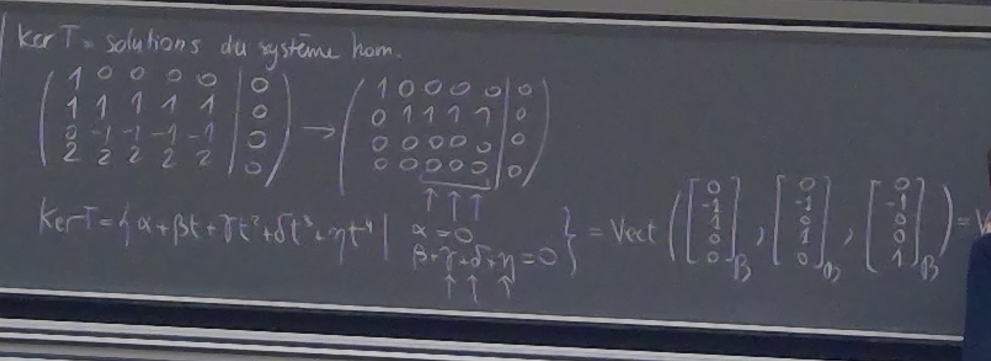 Ker T = solutions du système hom.
( 1 0 0 0 0 | 0 ) → ( 1 0 0 0 0 | 0 )
( 1 1 1 1 1 | 0 ) ( 0 1 1 1 1 | 0 )
( 0 -1 -1 -1 -1 | 0 ) ( 0 0 0 0 0 | 0 )
( 2 2 2 2 2 | 0 ) ( 0 0 0 0 0 | 0 )
↑ ↑ ↑
Ker T = { α + βt + γt² + δt³ + ηt⁴ | α = 0
β + γ + δ + η = 0 } = Vect ( [0 -1 1 0 0]_B , [0 -1 0 1 0]_B , [0 -1 0 0 1]_B ) =
↑ ↑ ↑